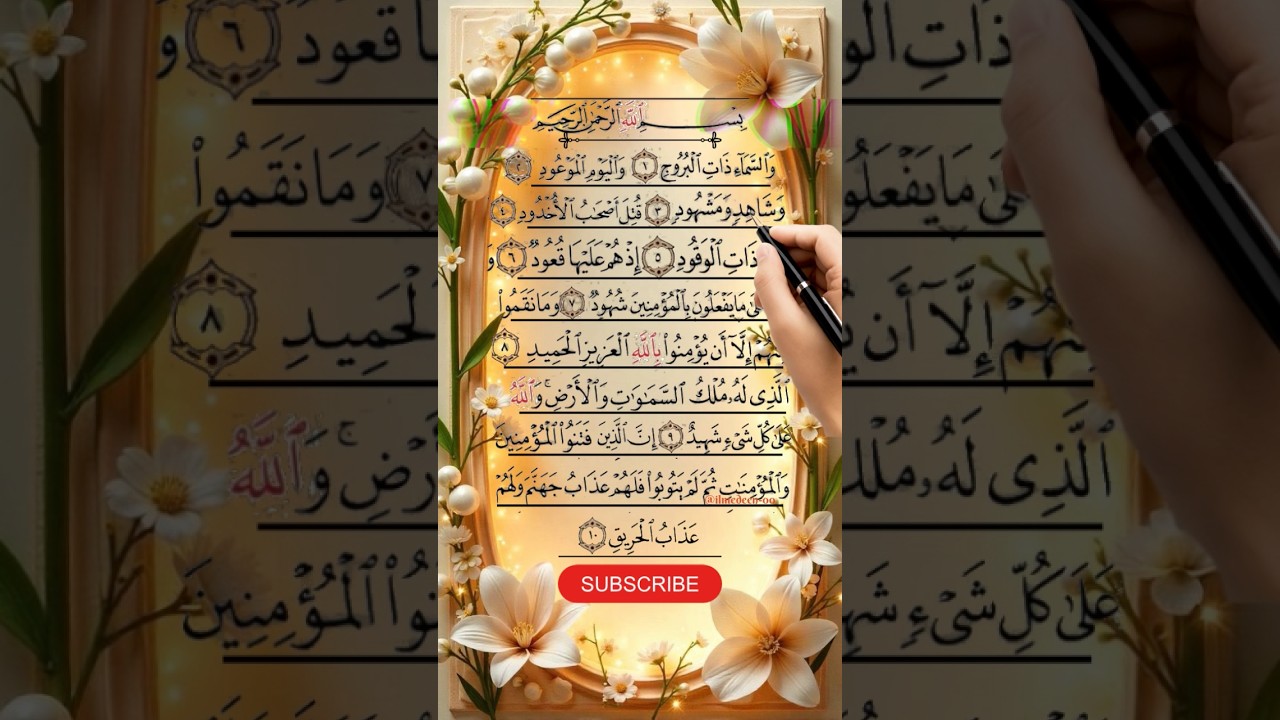 بِسْمِ ٱللَّهِ ٱلرَّحْمَٰنِ ٱلرَّحِيمِ
وَٱلسَّمَآءِ ذَاتِ ٱلْبُرُوجِ ١ وَٱلْيَوْمِ ٱلْمَوْعُودِ ٢
وَشَاهِدٍ وَمَشْهُودٍ ٣ قُتِلَ أَصْحَٰبُ ٱلْأُخْدُودِ ٤
ذَاتِ ٱلْوَقُودِ ٥ إِذْ هُمْ عَلَيْهَا قُعُودٌ ٦ و
مَا يَفْعَلُونَ بِٱلْمُؤْمِنِينَ شُهُودٌ ٧ وَمَا نَقَمُوا۟
إِلَّآ أَن يُؤْمِنُوا۟ بِٱللَّهِ ٱلْعَزِيزِ ٱلْحَمِيدِ ٨
ٱلَّذِى لَهُۥ مُلْكُ ٱلسَّمَٰوَٰتِ وَٱلْأَرْضِ ۚ وَٱللَّهُ
عَلَىٰ كُلِّ شَىْءٍ شَهِيدٌ ٩ إِنَّ ٱلَّذِينَ فَتَنُوا۟ ٱلْمُؤْمِنِينَ
وَٱلْمُؤْمِنَٰتِ ثُمَّ لَمْ يَتُوبُوا۟ فَلَهُمْ عَذَابُ جَهَنَّمَ وَلَهُمْ
عَذَابُ ٱلْحَرِيقِ ١٠
SUBSCRIBE